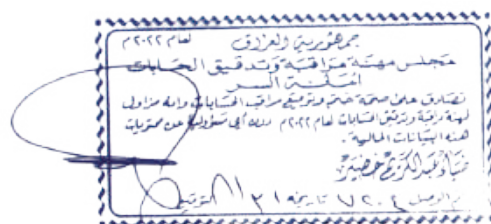 جمهورية العراق لعام ٢٠٢٢م
مجلس مهنة مراقبة وتدقيق الحسابات
امانة السر
نصادق على صحة ختم وتوقيع مراقب الحسابات وانه مزاول
لمهنة مراقبة وتدقيق الحسابات لعام ٢٠٢٢م دون أي مسؤولية عن محتويات
هذه البيانات المالية.
ضياء عبد الكريم خضير
رقم الوصل ٧٢٠٤ تاريخه ٣١/٨ التوقيع